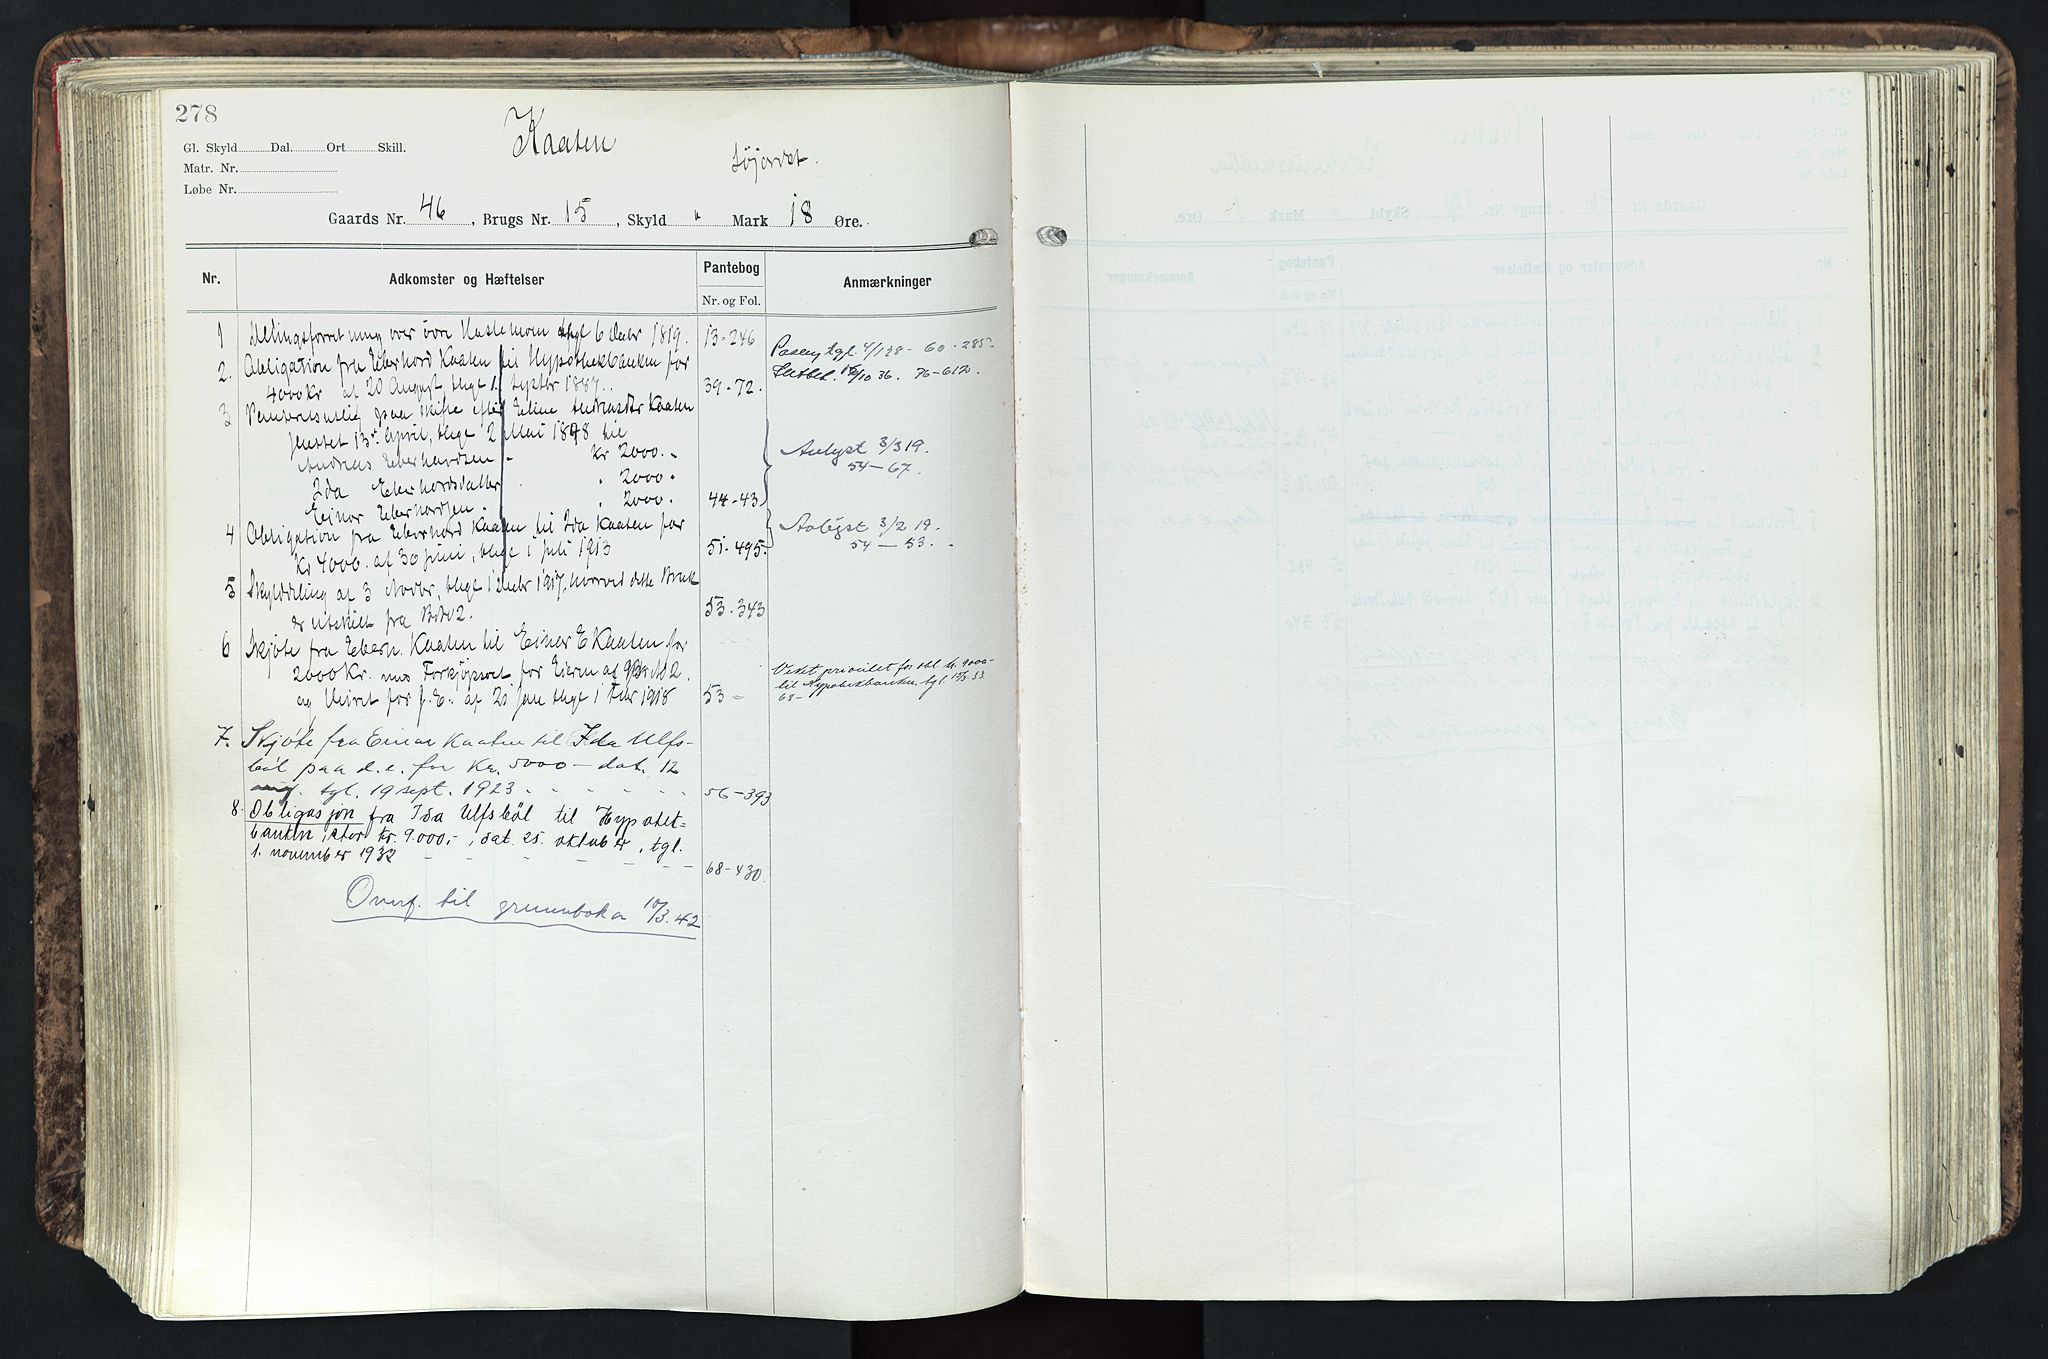 278
Kaaten
Gl. Skyld Dal. Ort Skill.
Matr. Nr.
Løbe Nr.
Gaards Nr. 46, Brugs Nr. 15, Skyld " Mark 18 Øre.
Nr. Adkomster og Hæftelser Pantebog Anmærkninger
Nr. og Fol.
1 Delingsforretning over øvre 6 Decbr 1819. 13-246
2. Obligation fra Eberhard Kaaten til Hypothekbanken for
4000 Kr af 20 August, thgl 1. 1887. 39-72.
Paaen. tgl. 60-285
Slutbet. 76-612.
3 paa skifte efter Eline Kaaten
sluttet 13 April, thgl 2 Mai 1898 til
Andreas Eberhardsen - Kr 2000. -
Ida Eberhardsdatter " 2000 "
Einar Eberhardsen - " 2000. 44-43
Avlyst 3/3 19.
54-67.
4 Obligation fra Eberhard Kaaten til Ida Kaaten for
Kr 4000. af 30 juni, thgl 1 juli 1913 51-495.
Avlyst 3/2 19.
54-53.
5 Skylddeling af 3 Novbr, thgl 1 Decbr 1917, hvorved dette Bruk
er utskilt fra Brno 2. 53-343
6 Skjøte fra Eberh. Kaaten til Einar E Kaaten for
2000 Kr. med Forkjøpsret for Eieren af Br No 2.
og for af 21 Jan thgl 1 Febr 1918 53 "
Veket prioritet for obl. kr. 9000-
til Hypotekbanken, tgl.
68-
7. Skjøte fra Einar Kaaten til Ida Ulfs-
bøl paa d. e. for Kr. 5000 - dat. 12
tgl. 19 sept. 1923 56-393
8. Obligasjon fra Ida Ulfsbøl til Hypotek=
banken, stor kr. 9.000,-, dat. 25. oktober, tgl.
1. november 1932 68-430.
Overf. til grunnboka 10/3.42